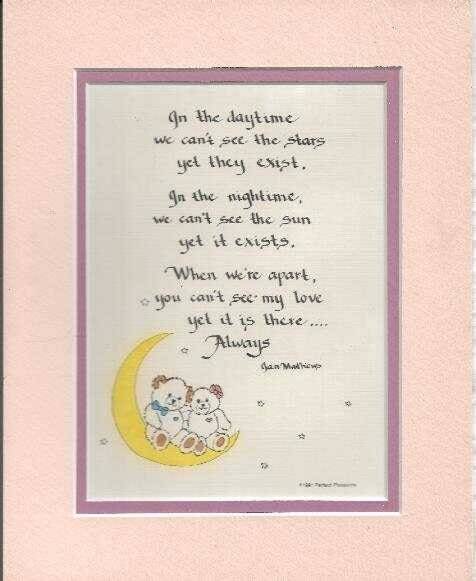 In the daytime
we can't see the stars
yet they exist.
In the nightime,
we can't see the sun
yet it exists.
When we're apart,
you can't see my love
yet it is there....
Always
Jan Mathews
©1991 Perfect Pleasures